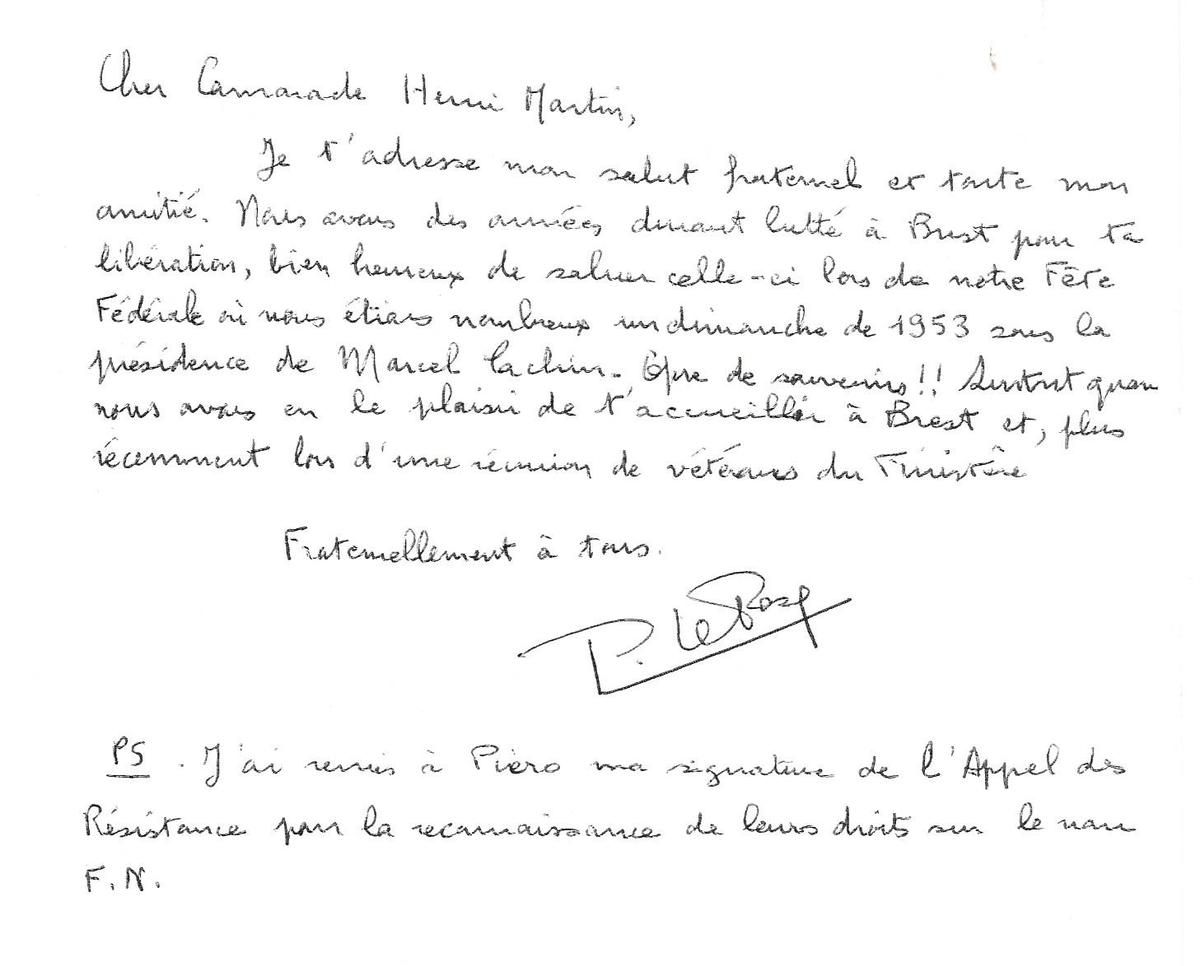 Cher Camarade Henri Martin,
Je t'adresse mon salut fraternel et toute mon
amitié. Nous avons des années durant lutté à Brest pour ta
libération, bien heureux de saluer celle-ci lors de notre Fête
Fédérale où nous étions nombreux un dimanche de 1953 sous la
présidence de Marcel Cachin. Que de souvenirs!! Surtout quan
nous avons eu le plaisir de t'accueillir à Brest et, plus
récemment lors d'une réunion de vétérans du Finistère
Fraternellement à tous.
P. Le Rose
PS. J'ai remis à Piero ma signature de l'Appel des
Résistance pour la reconnaissance de leurs droits sur le nom
F.N.